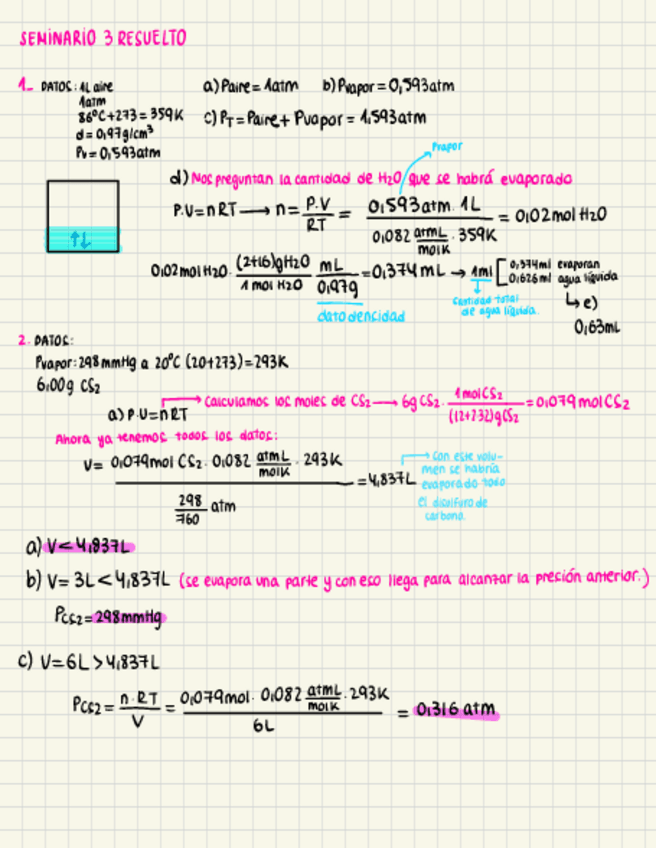 SEMINARIO 3 RESUELTO
1. DATOS: 1L aire
1atm
86°C+273=359K
d=0,97g/cm³
Pv=0,593atm
a) Paire=1atm b) Pvapor=0,593atm
c) PT=Paire+Pvapor=1,593atm
Pvapor
d) Nos preguntan la cantidad de H2O que se habrá evaporado
P.V=nRT → n= P.V / RT = 0,593atm. 1L / 0,082 atmL/molK . 359K = 0,02mol H2O
0,02mol H2O. (2+16)gH2O / 1 mol H2O mL / 0,97g =0,374mL → 1ml [ 0,374ml evaporan
0,626ml agua líquida
dato densidad
Cantidad total de agua líquida.
↳ e)
0,63mL
2. DATOS:
Pvapor: 298mmHg a 20°C (20+273)=293K
6,00g CS2
a) P.V=nRT → Calculamos los moles de CS2 → 6g CS2. 1molCS2 / (12+2.32)gCS2 =0,079molCS2
Ahora ya tenemos todos los datos:
V= 0,079mol CS2. 0,082 atmL/molK . 293K / 298/760 atm =4,837L
→ Con este volu-
men se habría
evaporado todo
el disulfuro de
carbono.
a) V<4,837L
b) V= 3L<4,837L (se evapora una parte y con eso llega para alcanzar la presión anterior.)
PCS2=298mmHg
c) V=6L>4,837L
PCS2= n.RT / V = 0,079mol. 0,082 atmL/molK . 293K / 6L = 0,316 atm